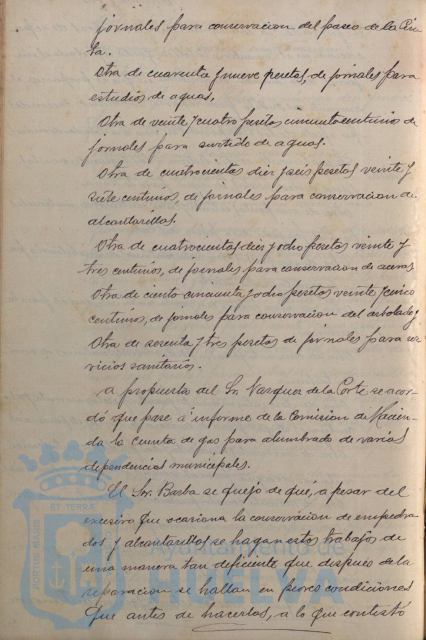 jornales para conservacion del paseo de la Cin-
ta.
Otra de cuarenta y nueve pesetas, de jornales para
estudios de aguas.
Otra de veinte y cuatro pesetas cincuenta centimos de
jornales para surtido de aguas.
Otra de cuatrocientas diez y seis pesetas veinte y
siete centimos, de jornales para conservacion de
alcantarillas.
Otra de cuatrocientas diez y ocho pesetas veinte y
tres centimos, de jornales para conservacion de aceras.
Otra de ciento cincuenta y ocho pesetas veinte y cinco
centimos, de jornales para conservacion del arbolado y
Otra de sesenta y tres pesetas de jornales para ser-
vicios sanitarios.
A propuesta del Sr. Vazquez de la Corte se acor-
dó que pase á informe de la Comision de Hacien-
da la cuenta de gas para alumbrado de varias
dependencias municipales.
El Sor. Barba se quejó de que, a pesar del
excesivo que ocasiona la conservacion de empedra-
dos y alcantarillas se hagan estos trabajos de
una manera tan deficiente que despues de la
reparacion se hallan en peores condiciones
que antes de hacerlas, a lo que contestó
PORTUS MARIS ET TERRÆ
Ayuntamiento de
HUELVA